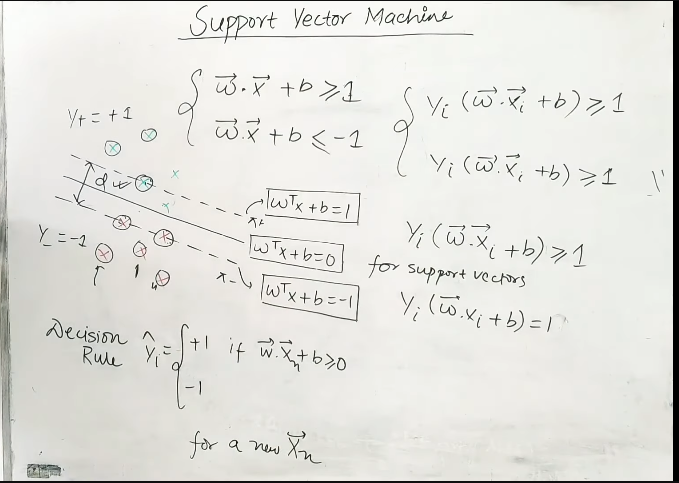 Support Vector Machine
w⃗·x⃗ + b ≥ 1
w⃗·x⃗ + b ≤ -1
yᵢ (w⃗·x⃗ᵢ + b) ≥ 1
yᵢ (w⃗·x⃗ᵢ + b) ≥ 1
y₊ = +1
d
wᵀx + b = 1
x₊
wᵀx + b = 0
y₋ = -1
x₋
wᵀx + b = -1
yᵢ (w⃗·x⃗ᵢ + b) ≥ 1
for support vectors
yᵢ (w⃗·xᵢ + b) = 1
Decision Rule ŷᵢ = { +1 if w⃗·x⃗ₙ + b ≥ 0
-1
for a new x⃗ₙ